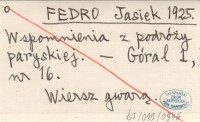 FEDRO Jasiek 1925.
Wspomnienia z podróży
paryskiej. — Góral I,
nr 16.
Wiersz gwarą.